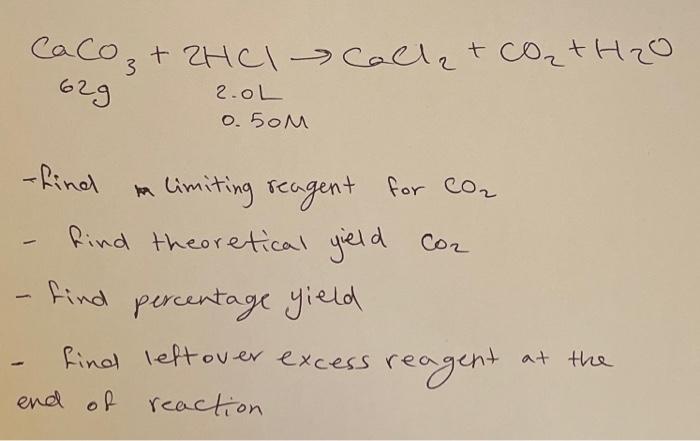 CaCO₃ + 2HCl → CaCl₂ + CO₂ + H₂O
62g 2.0L
0.50M
-find limiting reagent for CO₂
- find theoretical yield CO₂
- find percentage yield
- find leftover excess reagent at the
end of reaction